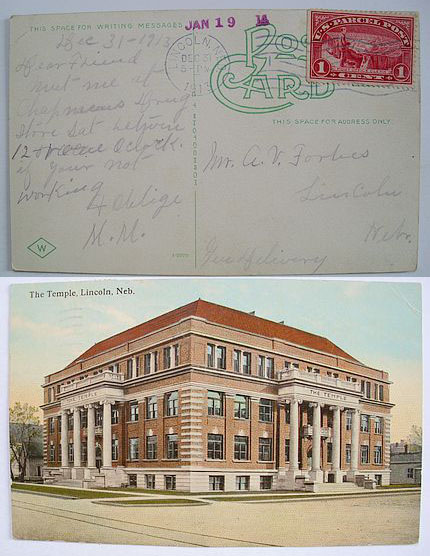 THIS SPACE FOR WRITING MESSAGES
JAN 19 14
Dec 31-1913
Dear Friend
meet me at
Chapmans Drug
Store Sat between
12 o clock.
if your not
working
Oblige
M.M.
W
LINCOLN, N
DEC 31
1913
POST CARD
U.S. PARCEL POST
1 CENT 1
THIS SPACE FOR ADDRESS ONLY.
Mr. A.V. Forbes
Lincoln
Nebr.
Gen delivery
The Temple, Lincoln, Neb.
THE TEMPLE
THE TEMPLE